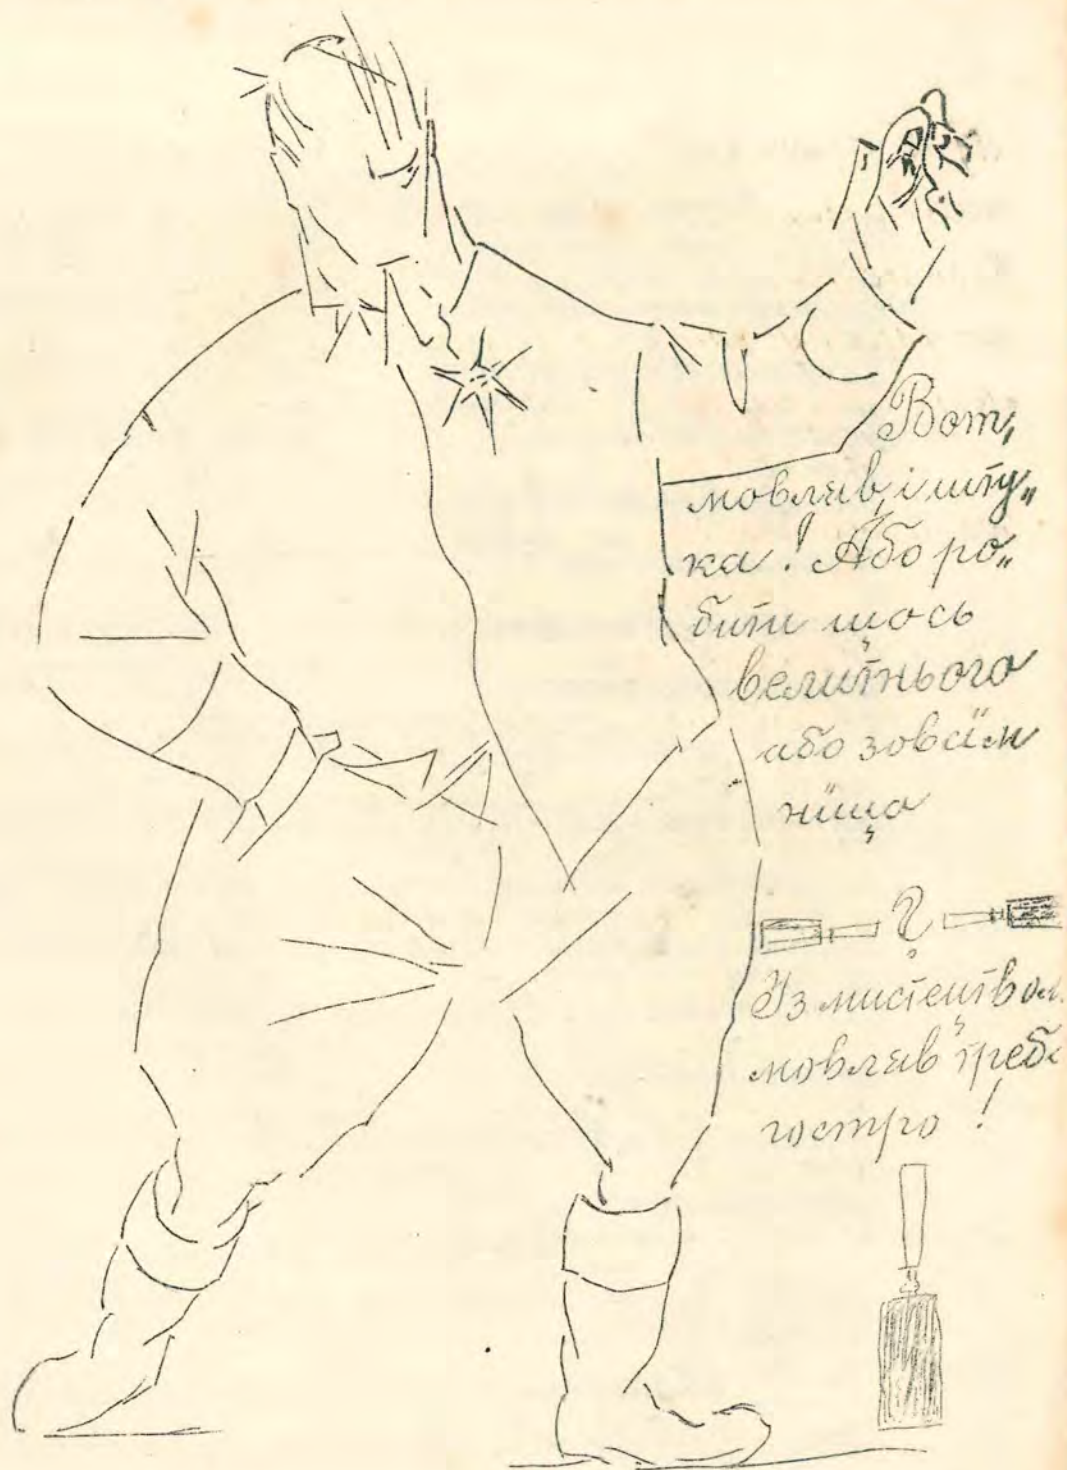 Вот,
мовляв, і шту„
ка! Або ро„
бити щось
велитнього
або зовсїм
нїщо
?
Із мистецтвом
мовляв треба
гостро!